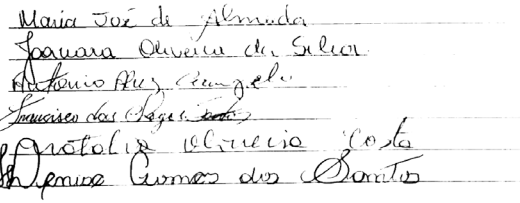 Maria José de Almeida
Joanara Oliveira da Silva
Antonio
Francisco das Chagas
Oliveira Costa
Denise Gomes dos Santos